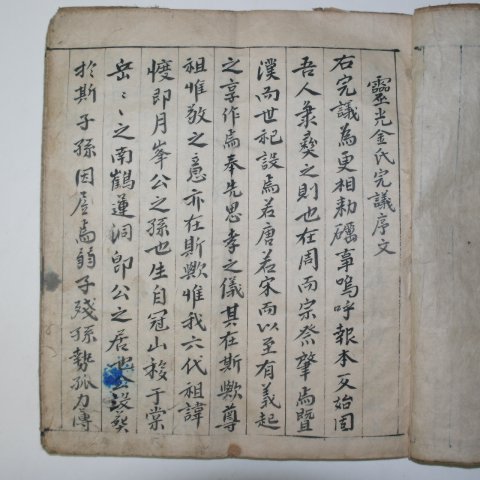 靈光金氏完議序文
右完議為更相勅礪事嗚呼報本反始固
吾人秉彛之則也在周而宗祭肇焉曁
漢而世祀設焉若唐若宋而以至有義起
之享作焉奉先思孝之儀其在斯歟尊
祖惟敬之意亦在斯歟惟我六代祖諱
㦿即月峯公之孫也生自冠山移于棠
岳〻之南鶴蓮洞即公之居也設葬
於斯子孫因居焉弱子殘孫勢孤力薄